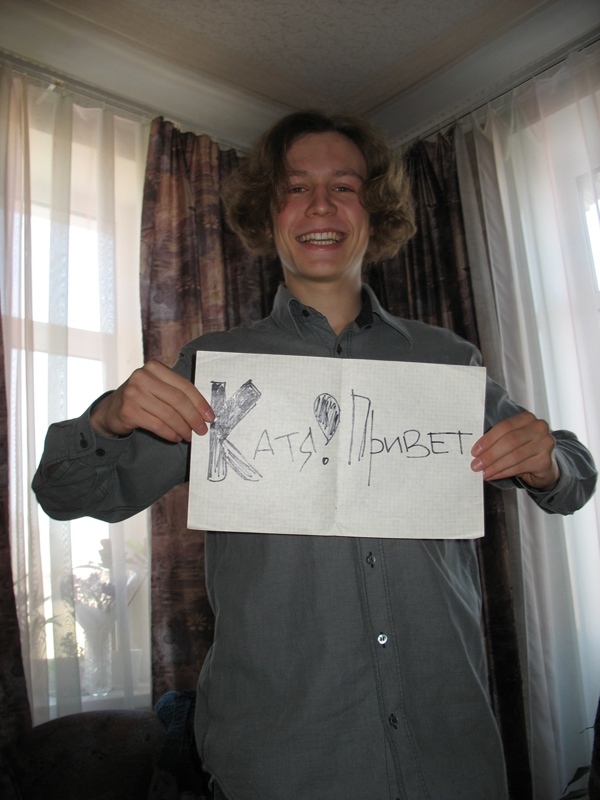 Катя! Привет